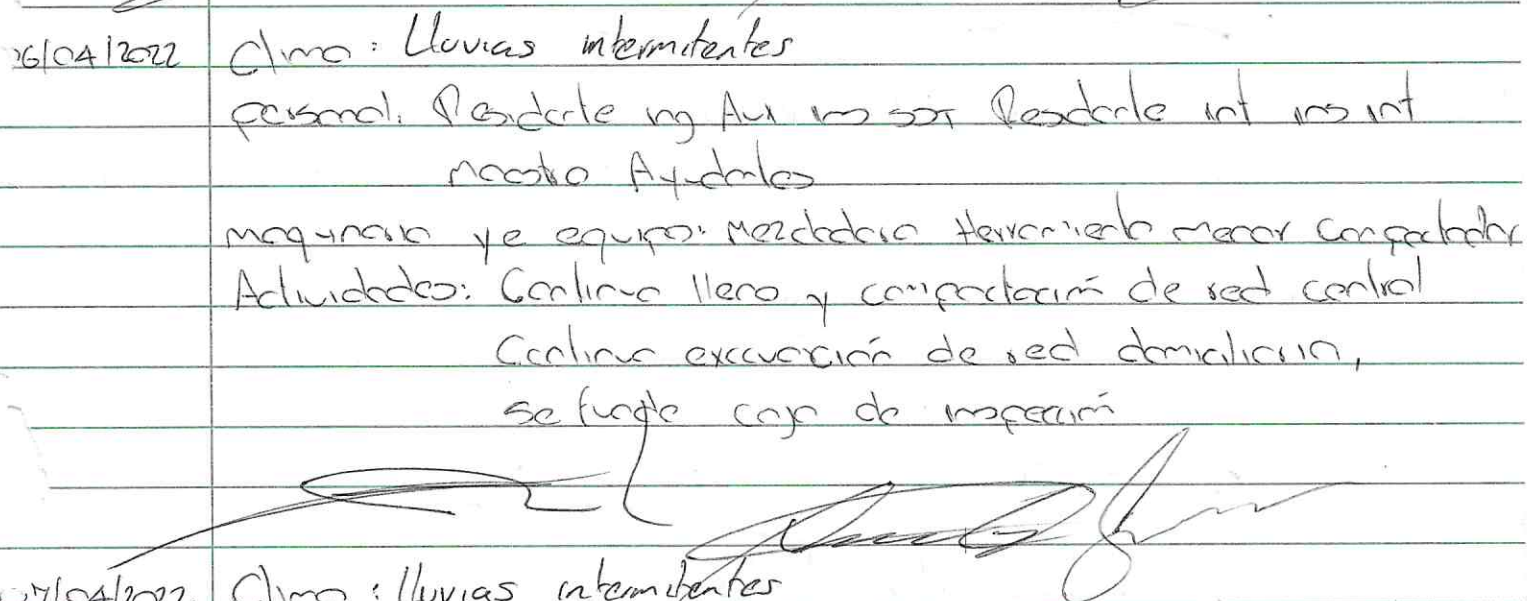 06/04/2022 Clima: Lluvias intermitentes
personal: Residente ing Aux ins SST Residente int ins int
maestro Ayudantes
maquinaria y e equipo: Mezcladora Herramienta menor Compactador
Actividades: Continua lleno y compactación de red central
Continua excavación de red domiciliaria,
se funde caja de inspección
07/04/2022 Clima: lluvias intermitentes